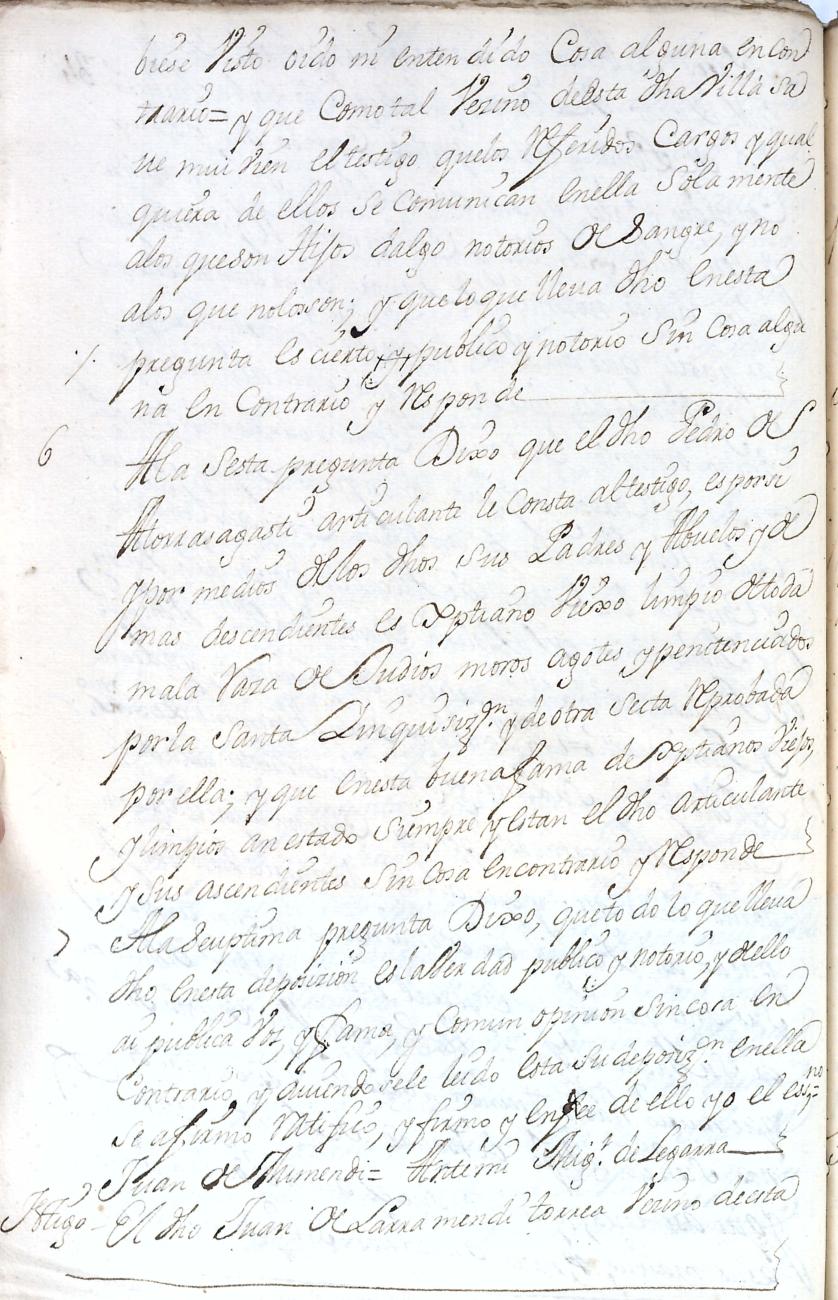 biese Visto oido ni entendido Cosa alguna en con
trario= y que Como tal Vezino de esta dha Villa sa
ve mui vien el testigo que los Referidos Cargos y qual
quiera de ellos se Comunican en ella Solamente
a los que son Hijos dalgo notorios de Sangre, y no
a los que no lo son; y que lo que lleva dho en esta
pregunta es cierto, publico y notorio Sin Cosa algu
na en Contrario y Responde
6 A la Sesta pregunta Dixo que el dho Pedro de
Atorrasagasti articulante le Consta al testigo, es por si
y por medios de los dhos sus Padres y Abuelos y de
mas descendientes es Xptiano Viexo limpio de toda
mala Raza de Judios moros agotes y penitenciados
por la Santa Inquisizn. y de otra Secta Reprobada
por ella; y que en esta buena fama de Xptianos Viejos,
y limpios an estado Siempre y estan el dho articulante
y sus ascendientes Sin Cosa en contrario y Responde
7 A la Seuptima pregunta Dixo, que todo lo que lleva
dho en esta deposizion es la Verdad publico y notorio, y de ello
ai publica Voz, y fama, y Comun opinion Sin cosa en
Contrario, y aviendosele leido esta su deposizn. en ella
se afirmo Ratifico, y firmo y en fee de ello yo el essno=
Juan de = Ante mi Migl. de Legarra
Testigo - El dho Juan de Larramendi torrea Vezino de esta